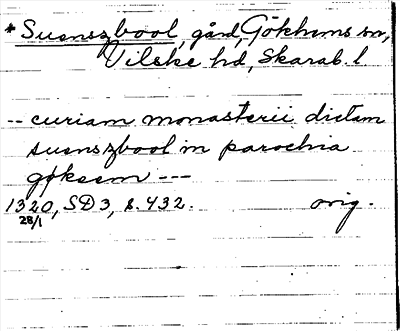 *Suenszbool, gård, Gökhems sn,
Vilske hd, Skarab. l.
-- curiam monasterii dictam
suenszbool in parochia
gøkeem ---
1320, SD3, s. 432. orig.
28/1